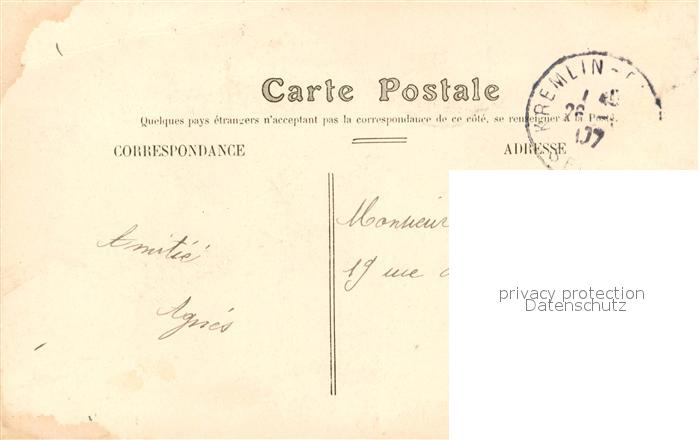 Carte Postale
Quelques pays étrangers n'acceptant pas la correspondance de ce côté, se renseigner à la Poste.
CORRESPONDANCE
ADRESSE
KREMLIN-
26
Monsieur
19 rue
Amitié
Agnès
privacy protection
Datenschutz